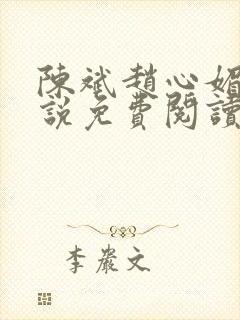 陳斌趙心媚
說免費閱讀
李嚴文